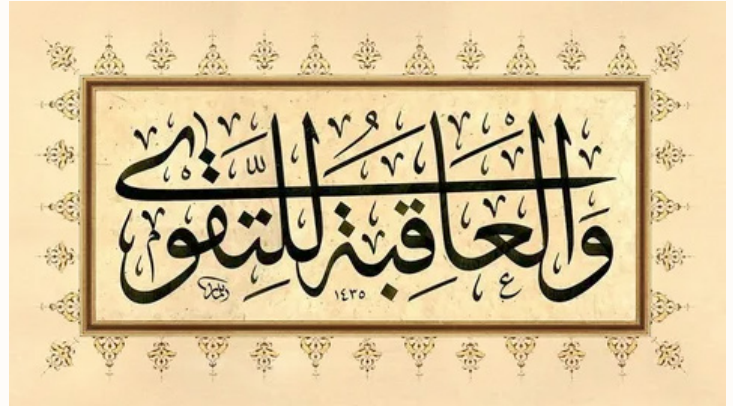 وَالْعَاقِبَةُ لِلتَّقْوٰى
١٤٣٥